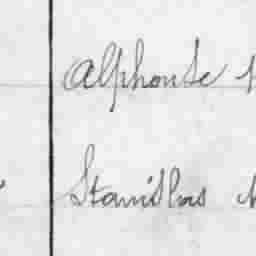 Alphonse
Stanislas